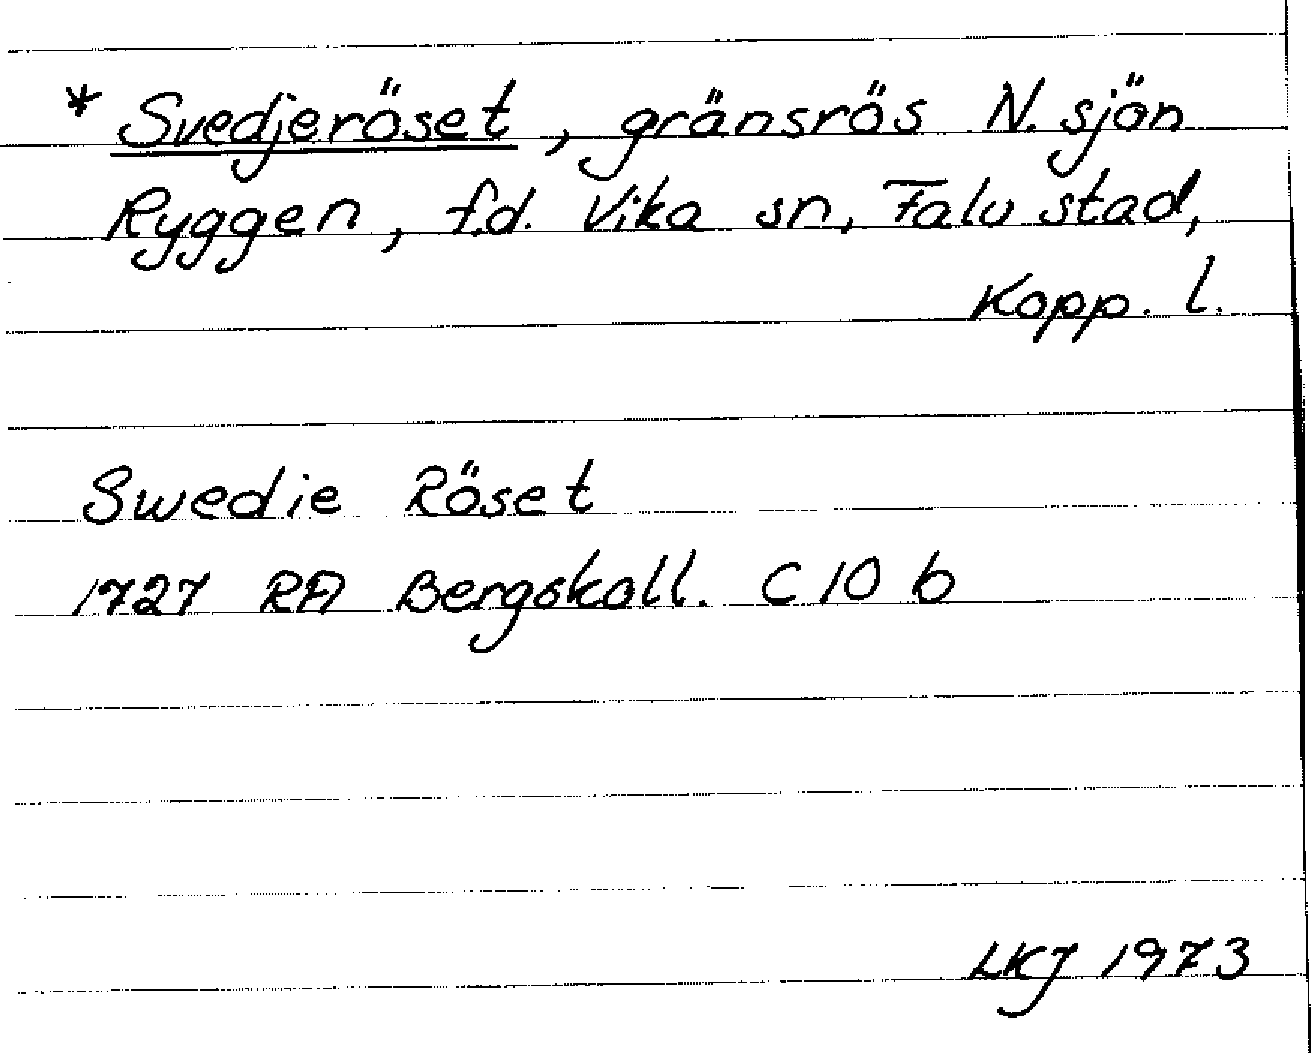 * Svedjeröset, gränsrös N. sjön
Ryggen, f.d. Vika sn, Falu stad,
Kopp. l.
Swedie Röset
1727 RA Bergskoll. C 10 b
LKJ 1973